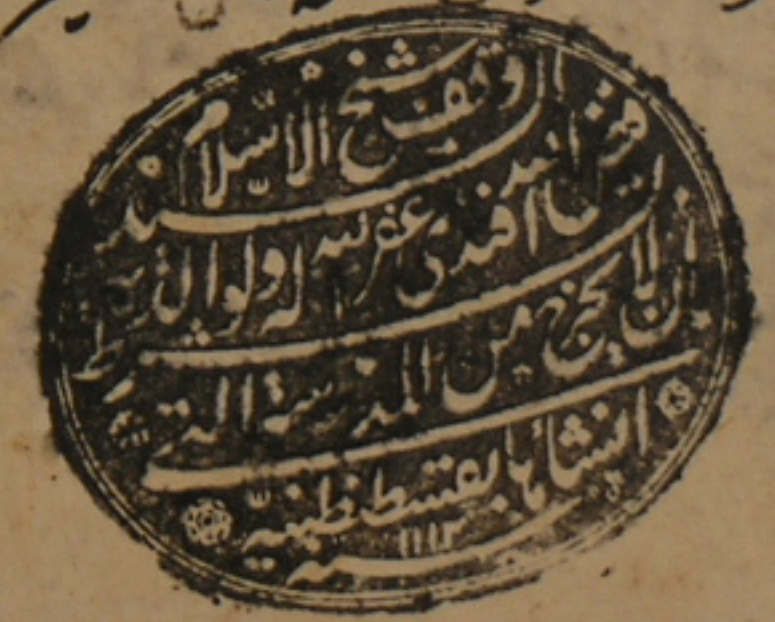 وقف شيخ الاسلام السيد
فيض الله افندى غفر الله له ولوالديه
بشرط أن لا يخرج من المدرسة التى
انشأها بقسطنطينية
سنة ١١١٣